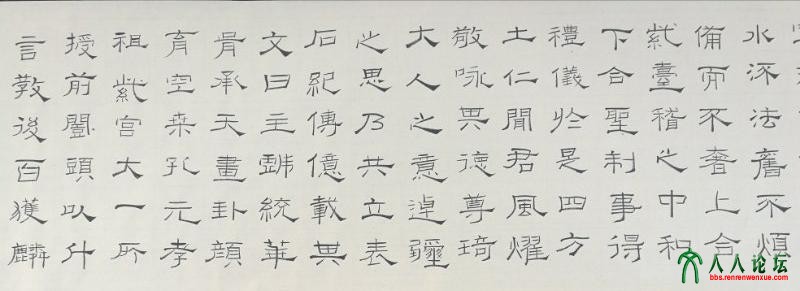 水深法舊不煩
備而不奢上合
紫臺稽之中和
下合聖制事得
禮儀於是四方
土仁聞君風燿
敬咏其德尊琦
大人之意逴彌
之思乃共立表
石紀傳億載其
文曰主戲統華
胥承天畫卦顏
育空桑孔元孝
祖紫宮大一所
授前闓頭以什
言敎後百獲麟
人人论坛
bbs.renrenwenxue.com